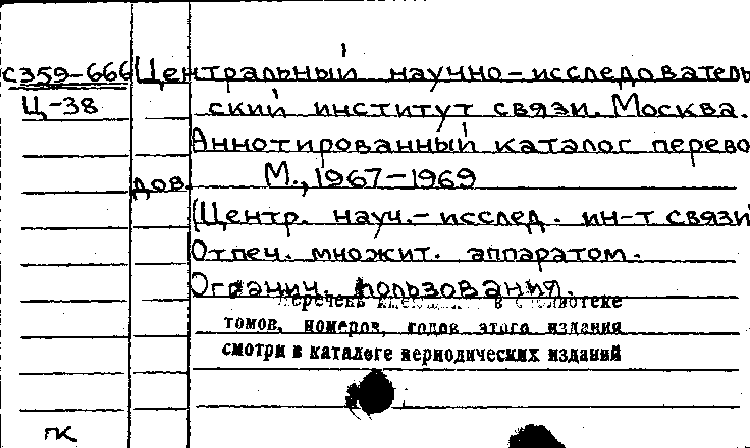 С359-666 Центральный научно-исследователь
Ц-38 ский институт связи. Москва.
Аннотированный каталог перево
дов. М., 1967-1969
(Центр. науч.-исслед. ин-т связи
Отпеч. множит. аппаратом.
Огранич. пользования.
Перечень имеющихся в библиотеке
томов, номеров, годов этого издания
смотри в каталоге периодических изданий
ПК